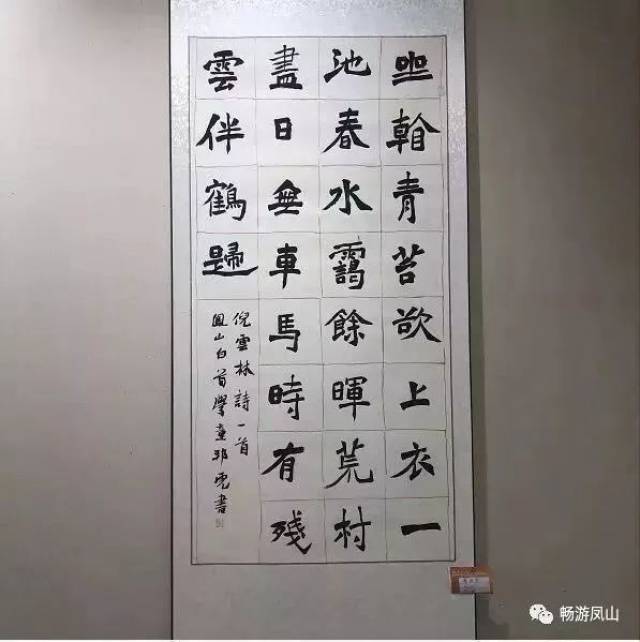 坐看青苔欲上衣一
池春水靄餘暉荒村
盡日無車馬時有殘
雲伴鶴歸
倪雲林詩一首
鳳山白首學童書
畅游凤山